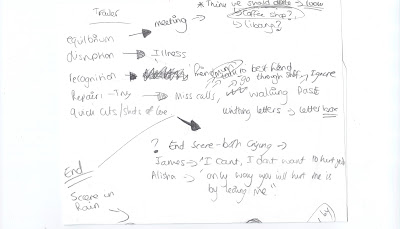 Trailer
* Think we should add
→ Coffee shop?
→ library?
equilibrium → meeting →
disruption → Illness
recognition → in best friend
go through stuff
Ignore
Repair: → Miss calls, walking Past
quick cuts/shots of love
writing letters → letter
? End scene - both crying →
James → 'I cant, I dont want to hurt you
Alisha → "only way you will hurt me is
by leaving me".
End
Scene in
Rain
by